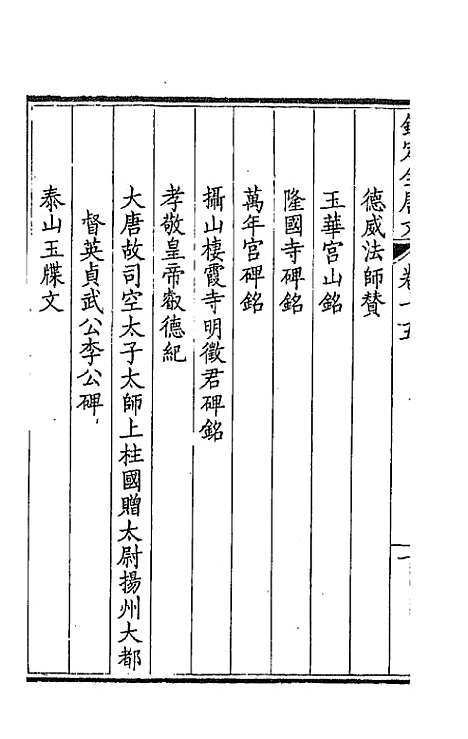 欽定全唐文 卷十五 一
德威法師贊
玉華宮山銘
隆國寺碑銘
萬年宮碑銘
攝山棲霞寺明徵君碑銘
孝敬皇帝叡德紀
大唐故司空太子太師上柱國贈太尉揚州大都
督英貞武公李公碑
泰山玉牒文